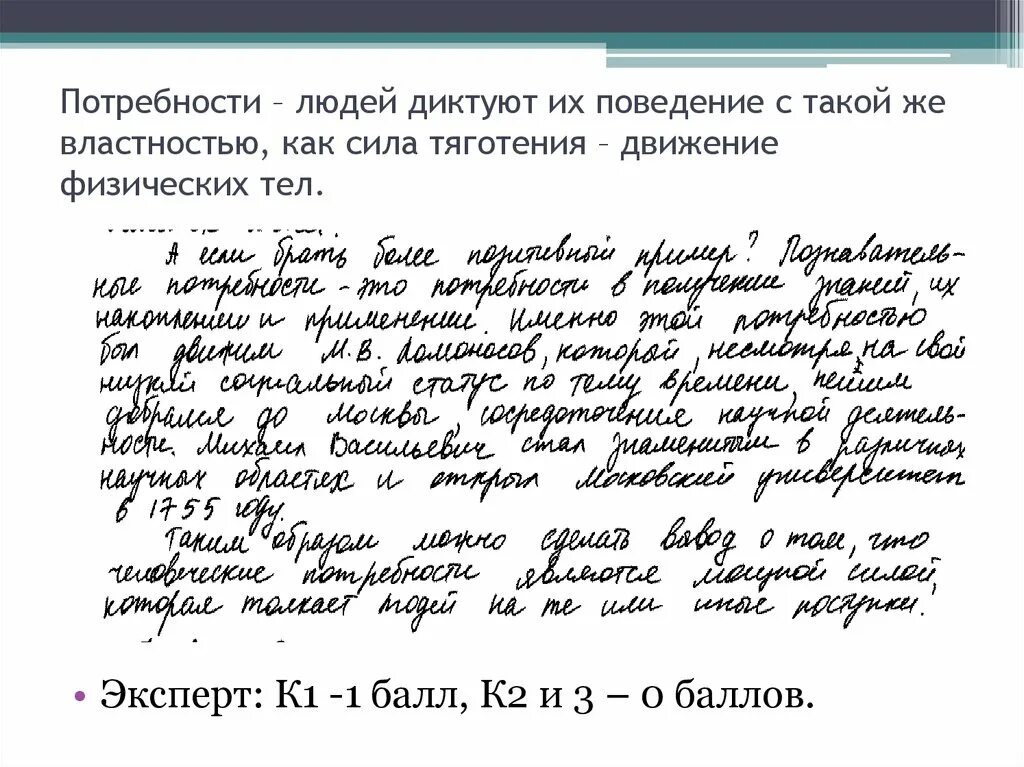 Потребности – людей диктуют их поведение с такой же
властностью, как сила тяготения – движение
физических тел.
А если брать более позитивный пример? Познаватель-
ные потребности - это потребности в получении знаний, их
накоплении и применении. Именно этой потребностью
был движим М.В. Ломоносов, который, несмотря на свой
низкий социальный статус по тому времени, пешим
добрался до Москвы, сосредоточения научной деятель-
ности. Михаил Васильевич стал знаменитым в различных
научных областях и открыл Московский университет
в 1755 году.
Таким образом можно сделать вывод о том, что
человеческие потребности являются мощной силой,
которая толкает людей на те или иные поступки.
• Эксперт: К1 -1 балл, К2 и 3 – 0 баллов.